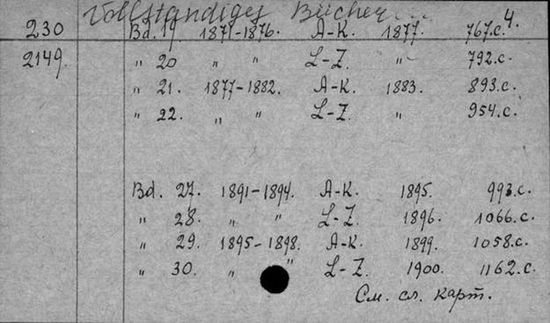 Vollständiges Bücher... 4.
230 Bd. 19. 1871-1876. A-K. 1877. 767.c.
2149. " 20 " " L-Z. " 792.c.
" 21. 1877-1882. A-K. 1883. 893.c.
" 22. " " L-Z. " 954.c.
Bd. 27. 1891-1894. A-K. 1895. 993.c.
" 28. " " L-Z. 1896. 1066.c.
" 29. 1895-1898. A-K. 1899. 1058.c.
" 30. " " L-Z. 1900. 1162.c.
См. сл. карт.